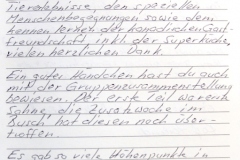 Tiererlebnisse, den speziellen
Menschenbegegnungen sowie dem
kennen lernen der kanadischen Gast-
freundschaft inkl. der Superküche,
vielen herzlichen Dank.
Ein gutes Händchen hast du auch
mit der Gruppenzusammenstellung
bewiesen. Der erste Teil war erste
Sahne, die Zusatzwoche im
Busch hat diesen noch über-
troffen.
Es gab so viele Höhenpunkte in